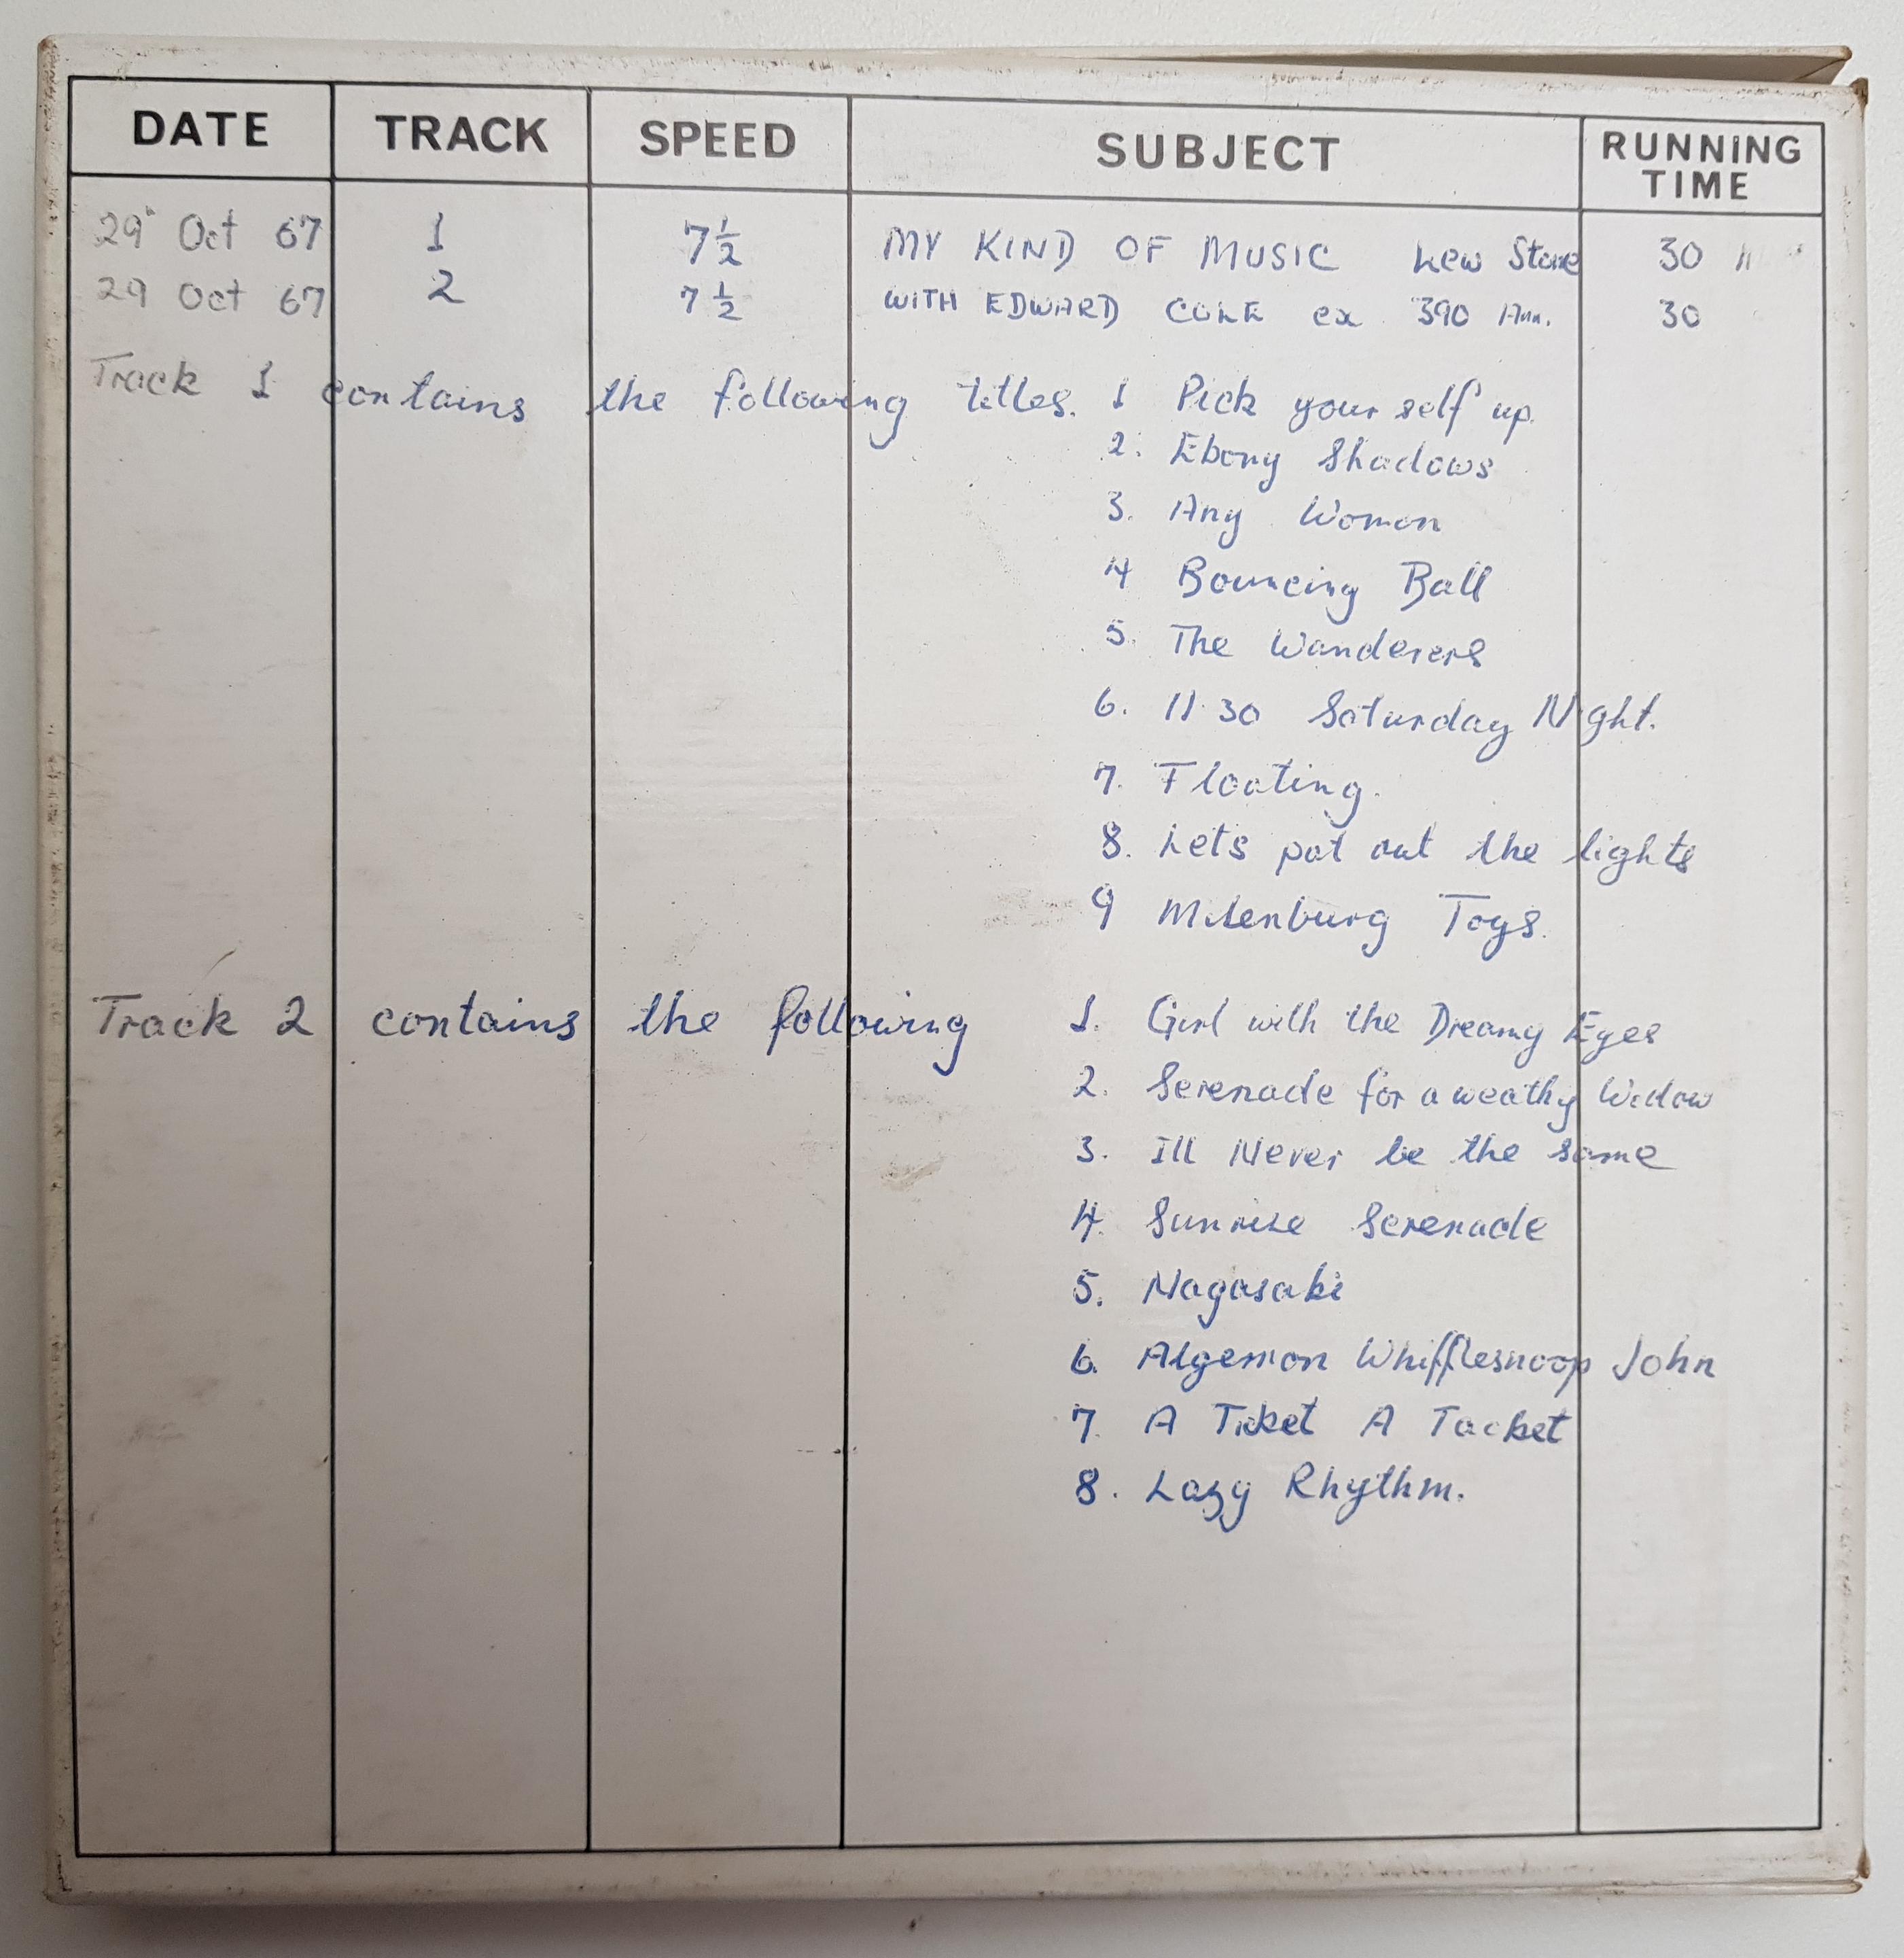 DATE TRACK SPEED SUBJECT RUNNING TIME
29 Oct 67 1 7 1/2 MY KIND OF MUSIC Lew Stone 30
29 Oct 67 2 7 1/2 WITH EDWARD COLE ex 390 Ann. 30
Track 1 contains the following titles. 1 Pick your self up.
2. Ebony Shadows
3. Any Woman
4 Bouncing Ball
5. The Wanderers
6. 11.30 Saturday Night.
7. Floating.
8. Lets put out the lights
9 Milenburg Toys.
Track 2 contains the following 1. Girl with the Dreamy Eyes
2. Serenade for a weathy Widow
3. Ill Never be the same
4. Sunrise Serenade
5. Nagasaki
6. Algernon Whifflesnoop John
7. A Ticket A Tacket
8. Lazy Rhythm.